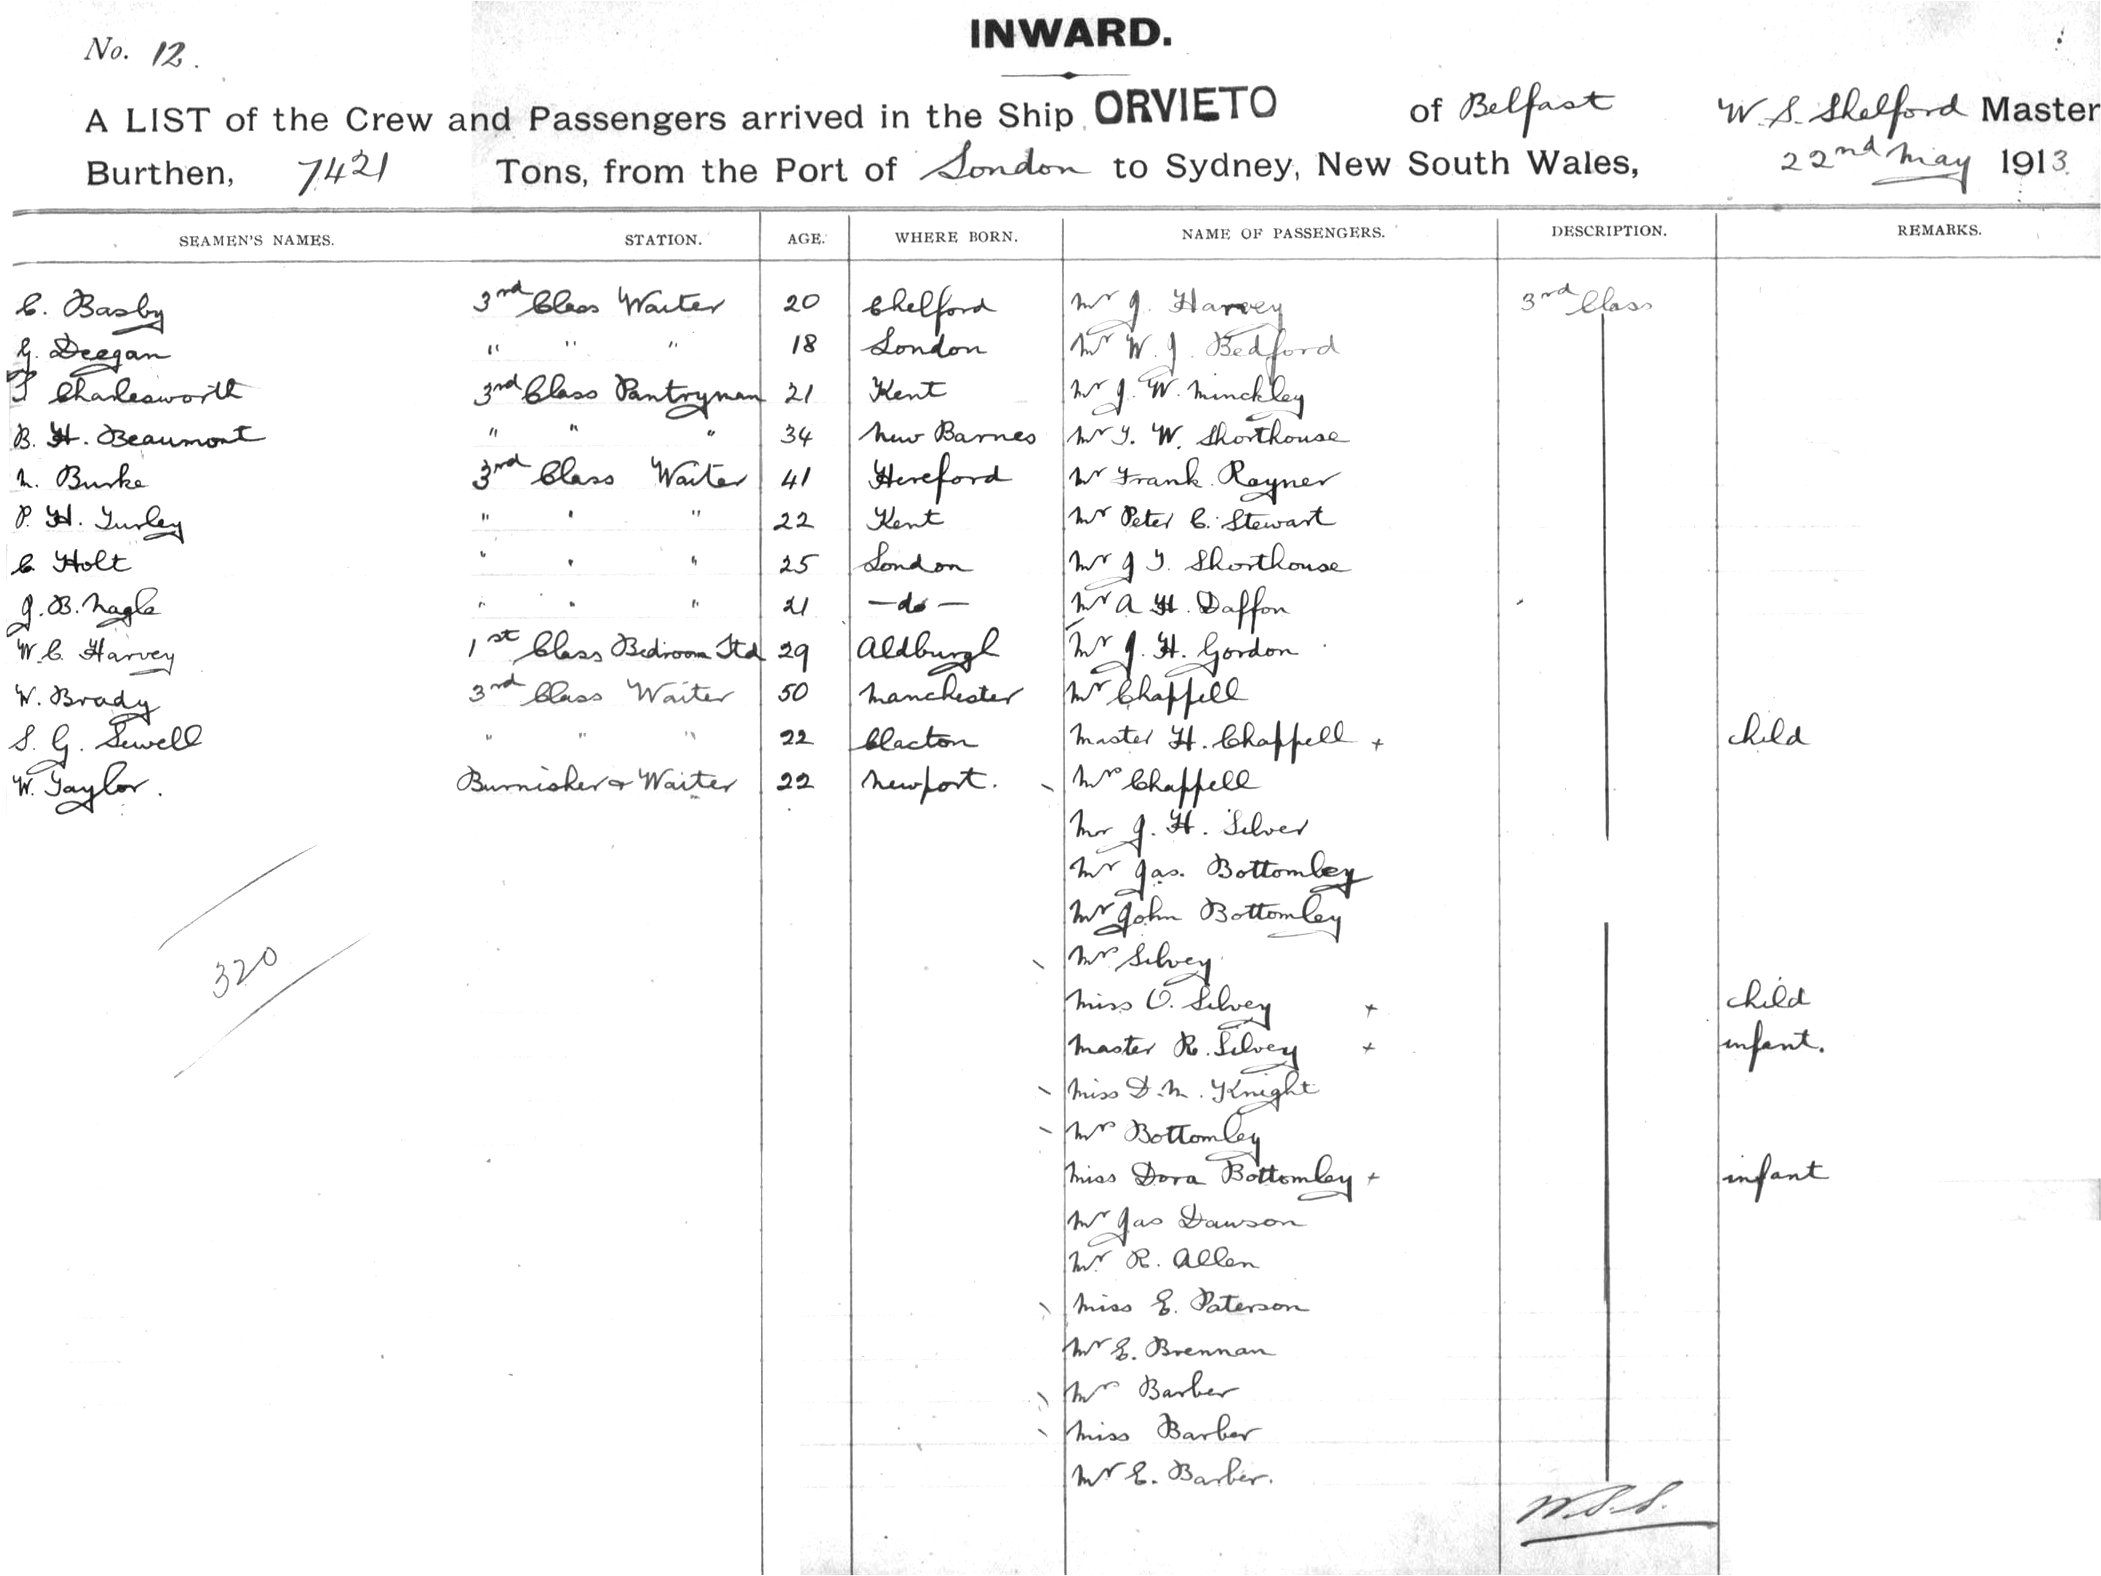 No. 12.
INWARD.
A LIST of the Crew and Passengers arrived in the Ship ORVIETO of Belfast W. S. Shelford Master
Burthen, 7421 Tons, from the Port of London to Sydney, New South Wales, 22nd May 1913
SEAMEN'S NAMES. STATION. AGE. WHERE BORN. NAME OF PASSENGERS. DESCRIPTION. REMARKS.
C. Basby 3rd Class Waiter 20 Chelford Mr J. Harvey 3rd Class
G. Deegan " " " 18 London Mr W. J. Bedford
Charlesworth 3rd Class Pantryman 21 Kent Mr J. W. Minckley
B. H. Beaumont " " " 34 New Barnes Mr T. W. Shorthouse
M. Burke 3rd Class Waiter 41 Hereford Mr Frank Rayner
P. H. Turley " " " 22 Kent Mr Peter C. Stewart
C Holt " " " 25 London Mr J T. Shorthouse
J. B. Nagle " " " 21 — do — Mr A H. Daffon
W. C. Harvey 1st Class Bedroom Std 29 Aldburgh Mr J. H. Gordon
W. Brady 3rd Class Waiter 50 Manchester Mr Chappell
S. G. Sewell " " " 22 Clacton Master H. Chappell + child
W. Taylor. Burnisher & Waiter 22 Newport. Mrs Chappell
Mr J. H. Silver
Mr Jas. Bottomley
Mr John Bottomley
320
Mrs Silvey
Miss O. Silvey + child
Master R. Silvey + infant.
Miss D. M. Knight
Mrs Bottomley
Miss Dora Bottomley + infant
Mr Jas Dawson
Mr R. Allen
Miss E. Paterson
Mr E. Brennan
Mrs Barber
Miss Barber
Mr E. Barber.
W.S.S.